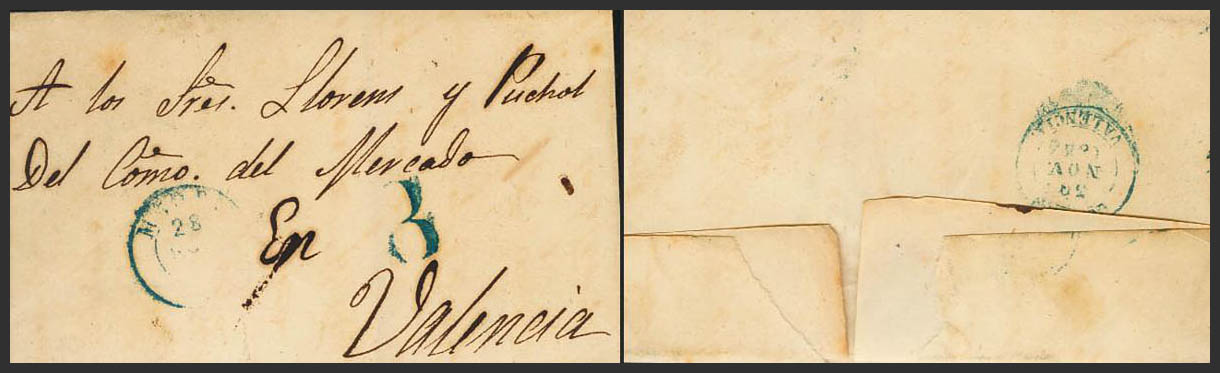 A los Sres. Llorens y Puchol
Del Cômo. del Mercado
28
En
8
Valencia
VALENCIA
30
NOV